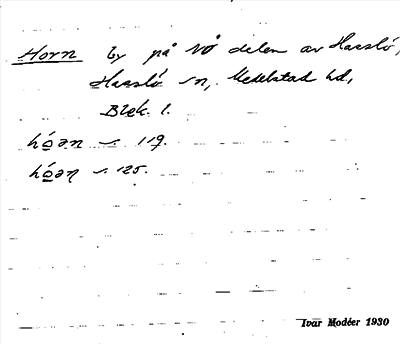 Horn by på NÖ delen av Hasslö,
Hasslö sn, Medelstad hd,
Blek. l.
hóən s. 119.
hóəɳ s. 125.
Ivar Modéer 1930